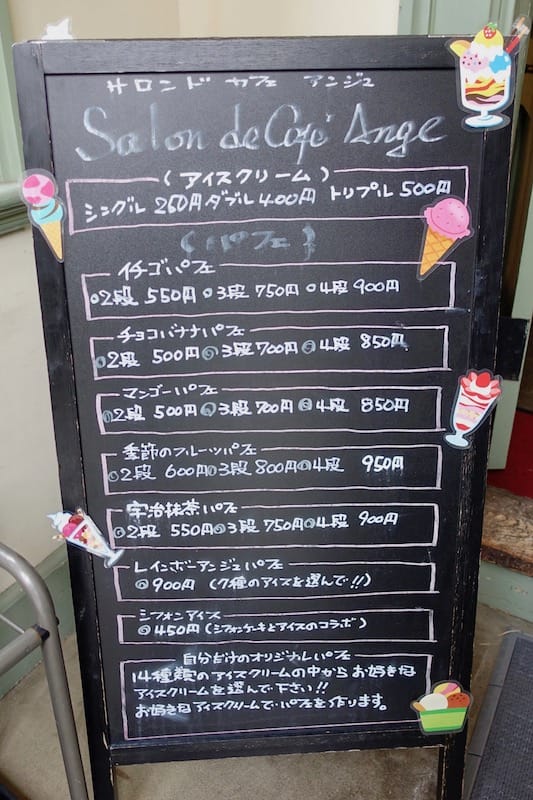 サロンド カフェ アンジュ
Salon de Café Ange
(アイスクリーム)
シングル 250円 ダブル 400円 トリプル 500円
{パフェ}
イチゴパフェ
○2段 550円 ○3段 750円 ○4段 900円
チョコバナナパフェ
◎2段 500円 ◎3段 700円 ◎4段 850円
マンゴーパフェ
◎2段 500円 ◎3段 700円 ◎4段 850円
季節のフルーツパフェ
◎2段 600円 ◎3段 800円 ◎4段 950円
宇治抹茶パフェ
◎2段 550円 ◎3段 750円 ◎4段 900円
レインボーアンジュパフェ
◎900円 (7種のアイスを選んで!!)
シフォンアイス
◎450円 (シフォンケーキとアイスのコラボ)
自分だけのオリジナルパフェ
14種類のアイスクリームの中からお好きな
アイスクリームを選んで下さい!!
お好きなアイスクリームでパフェを作ります。